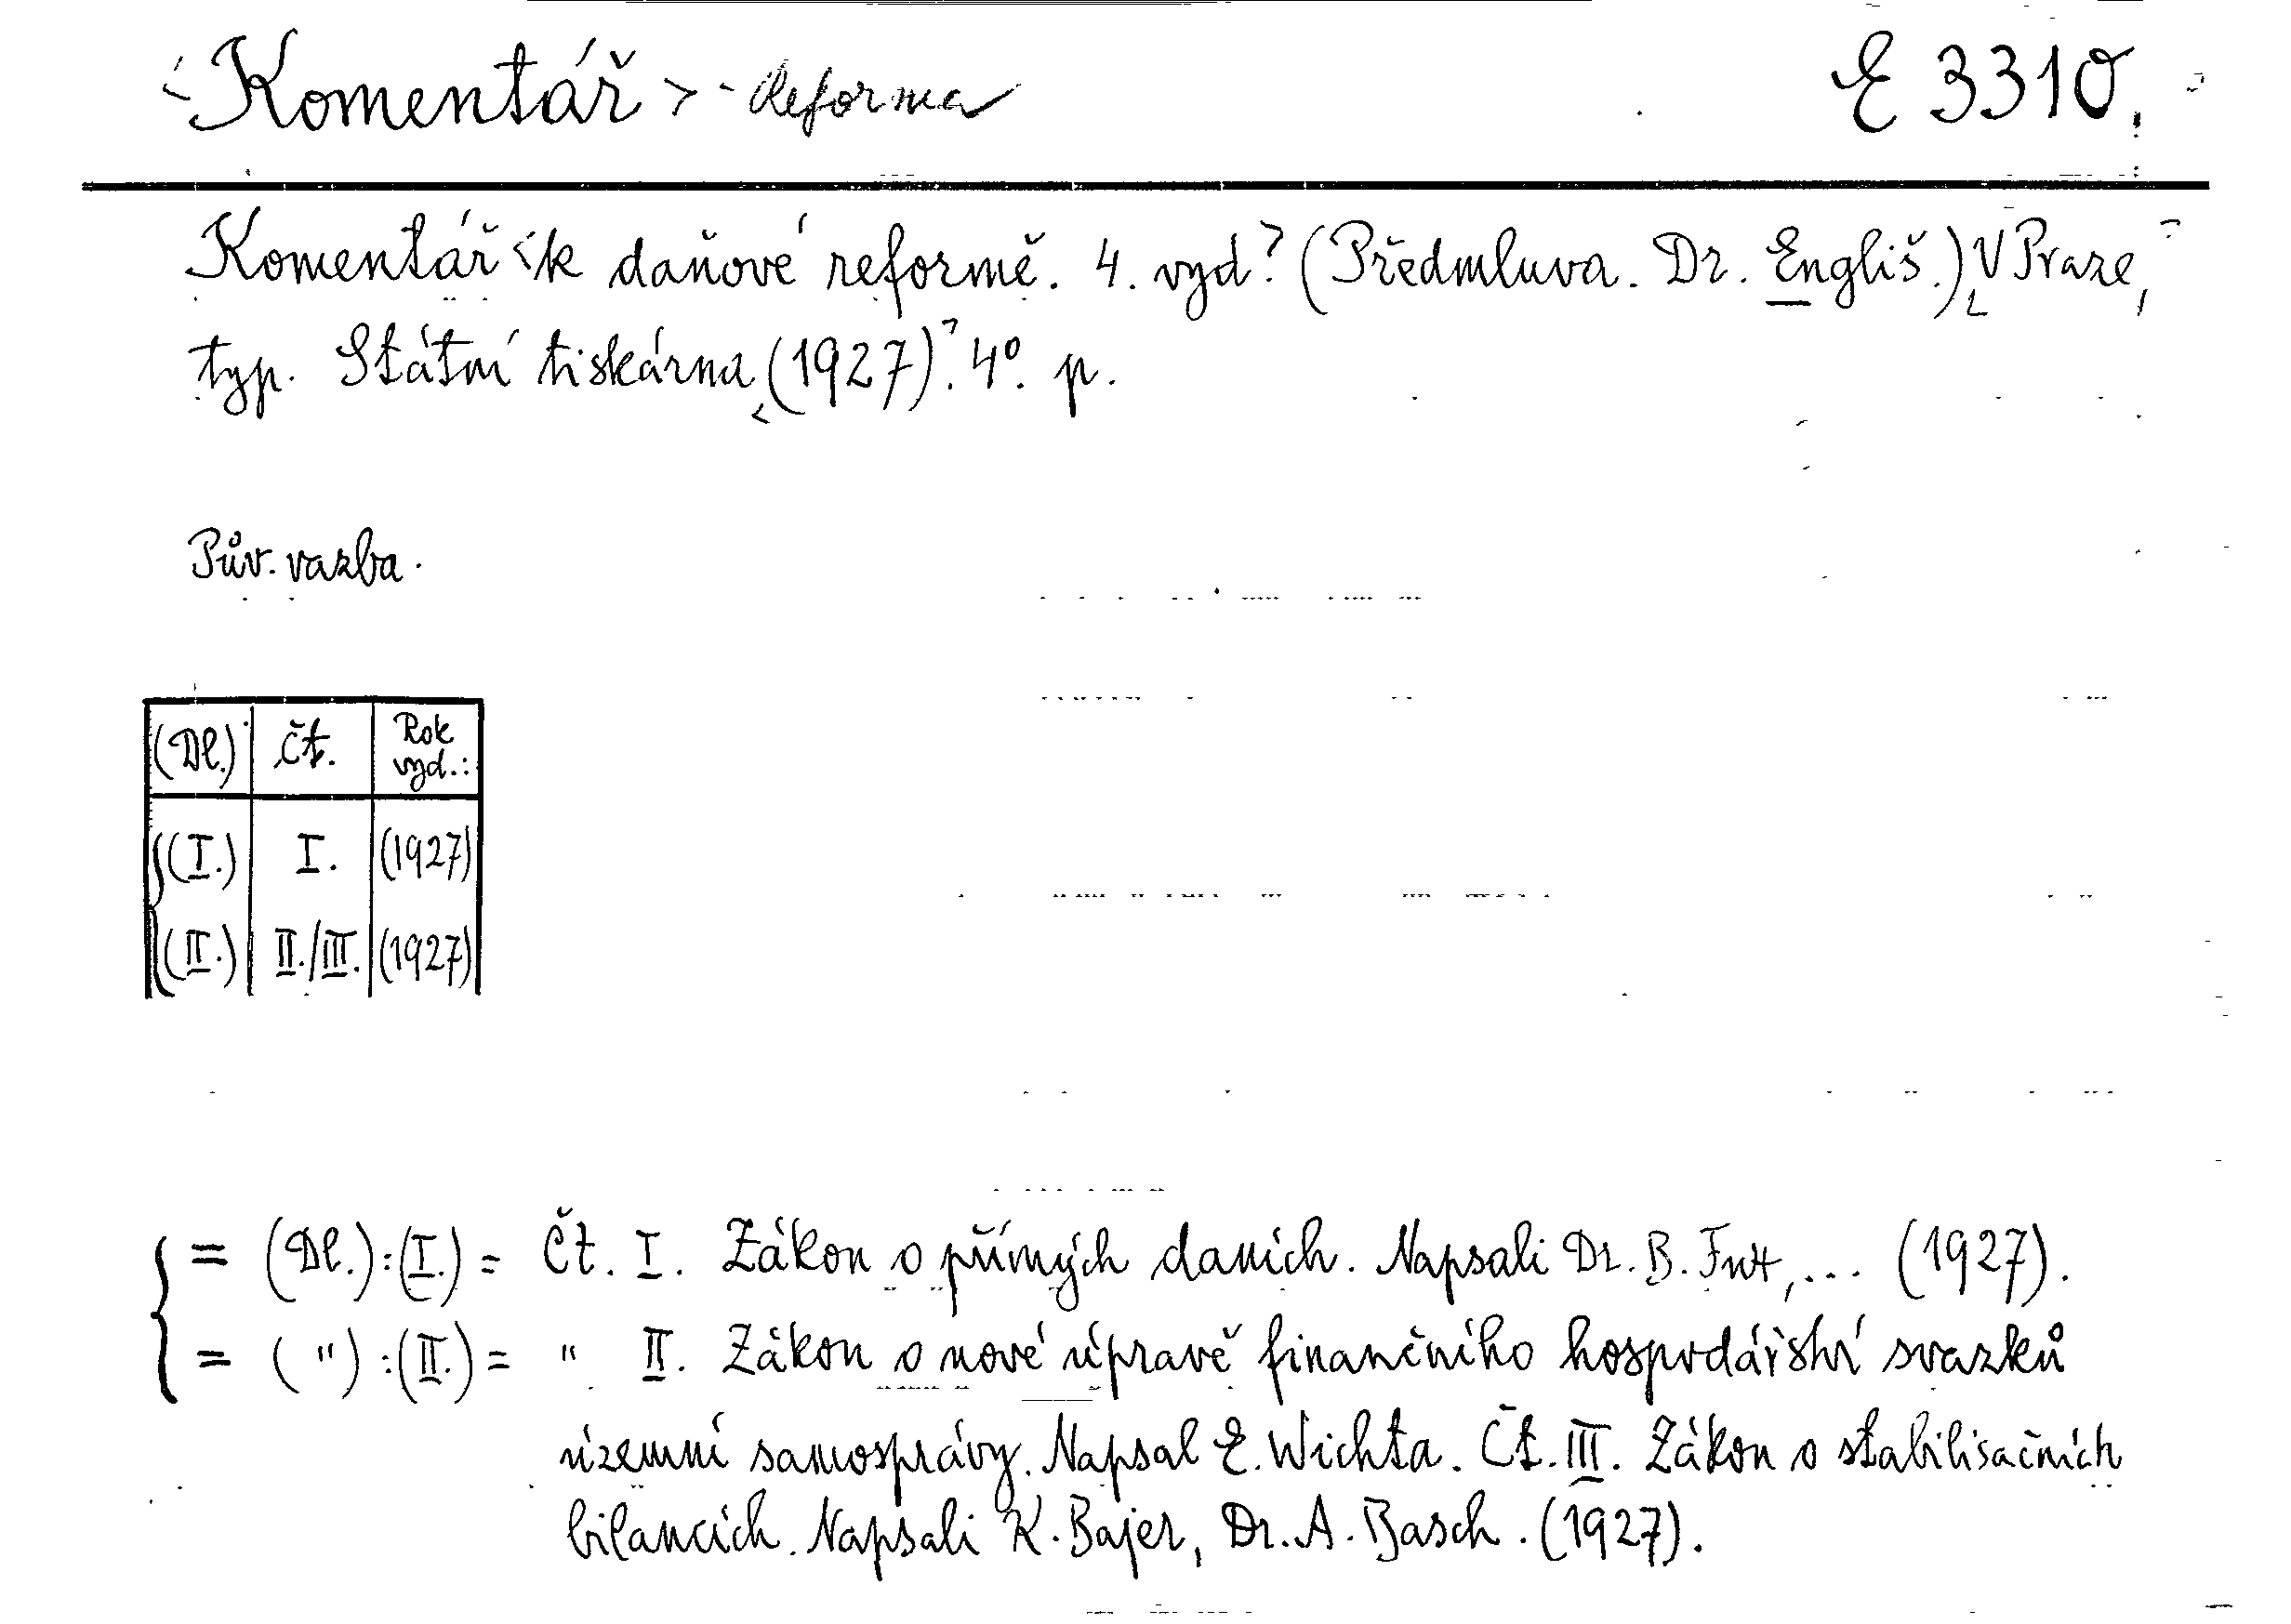 ‹Komentář› - Reforma E 3310.
Komentář ‹k daňové reformě. 4. vyd.› (Předmluva. Dr. Engliš.) V Praze,
typ. Státní tiskárna ‹(1927)›. 4°. p.
Pův. vazba.
(Dl.) Čt. Rok vyd.:
(I.) I. (1927)
(II.) II./III. (1927)
= (Dl.):(I.) = Čt. I. Zákon o přímých daních. Napsali Dr. B. Fux,... (1927).
= ( " ):(II.) = " II. Zákon o nové úpravě finančního hospodářství svazků
územní samosprávy. Napsal E. Wichta. Čt. III. Zákon o stabilisačních
bilancích. Napsali K. Bajer, Dr. A. Basch. (1927).